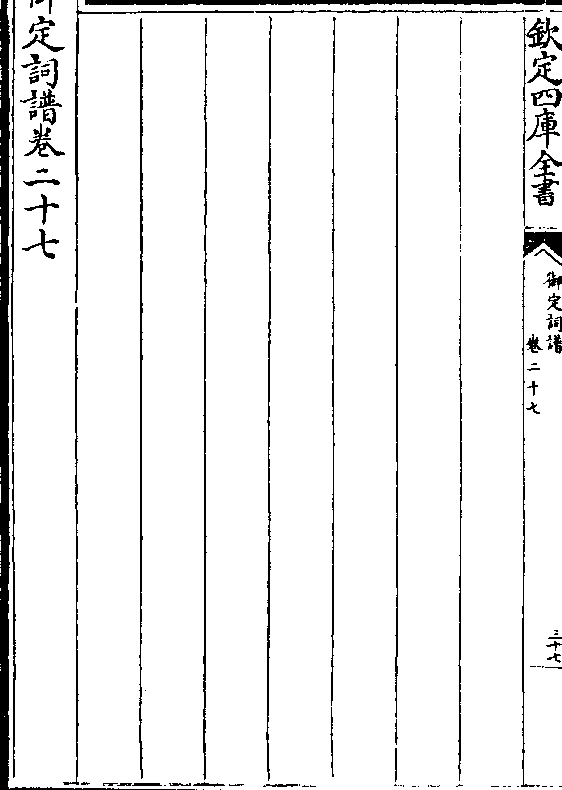 欽定四庫全書
御定詞譜
卷二十七
三十七
御定詞譜卷二十七